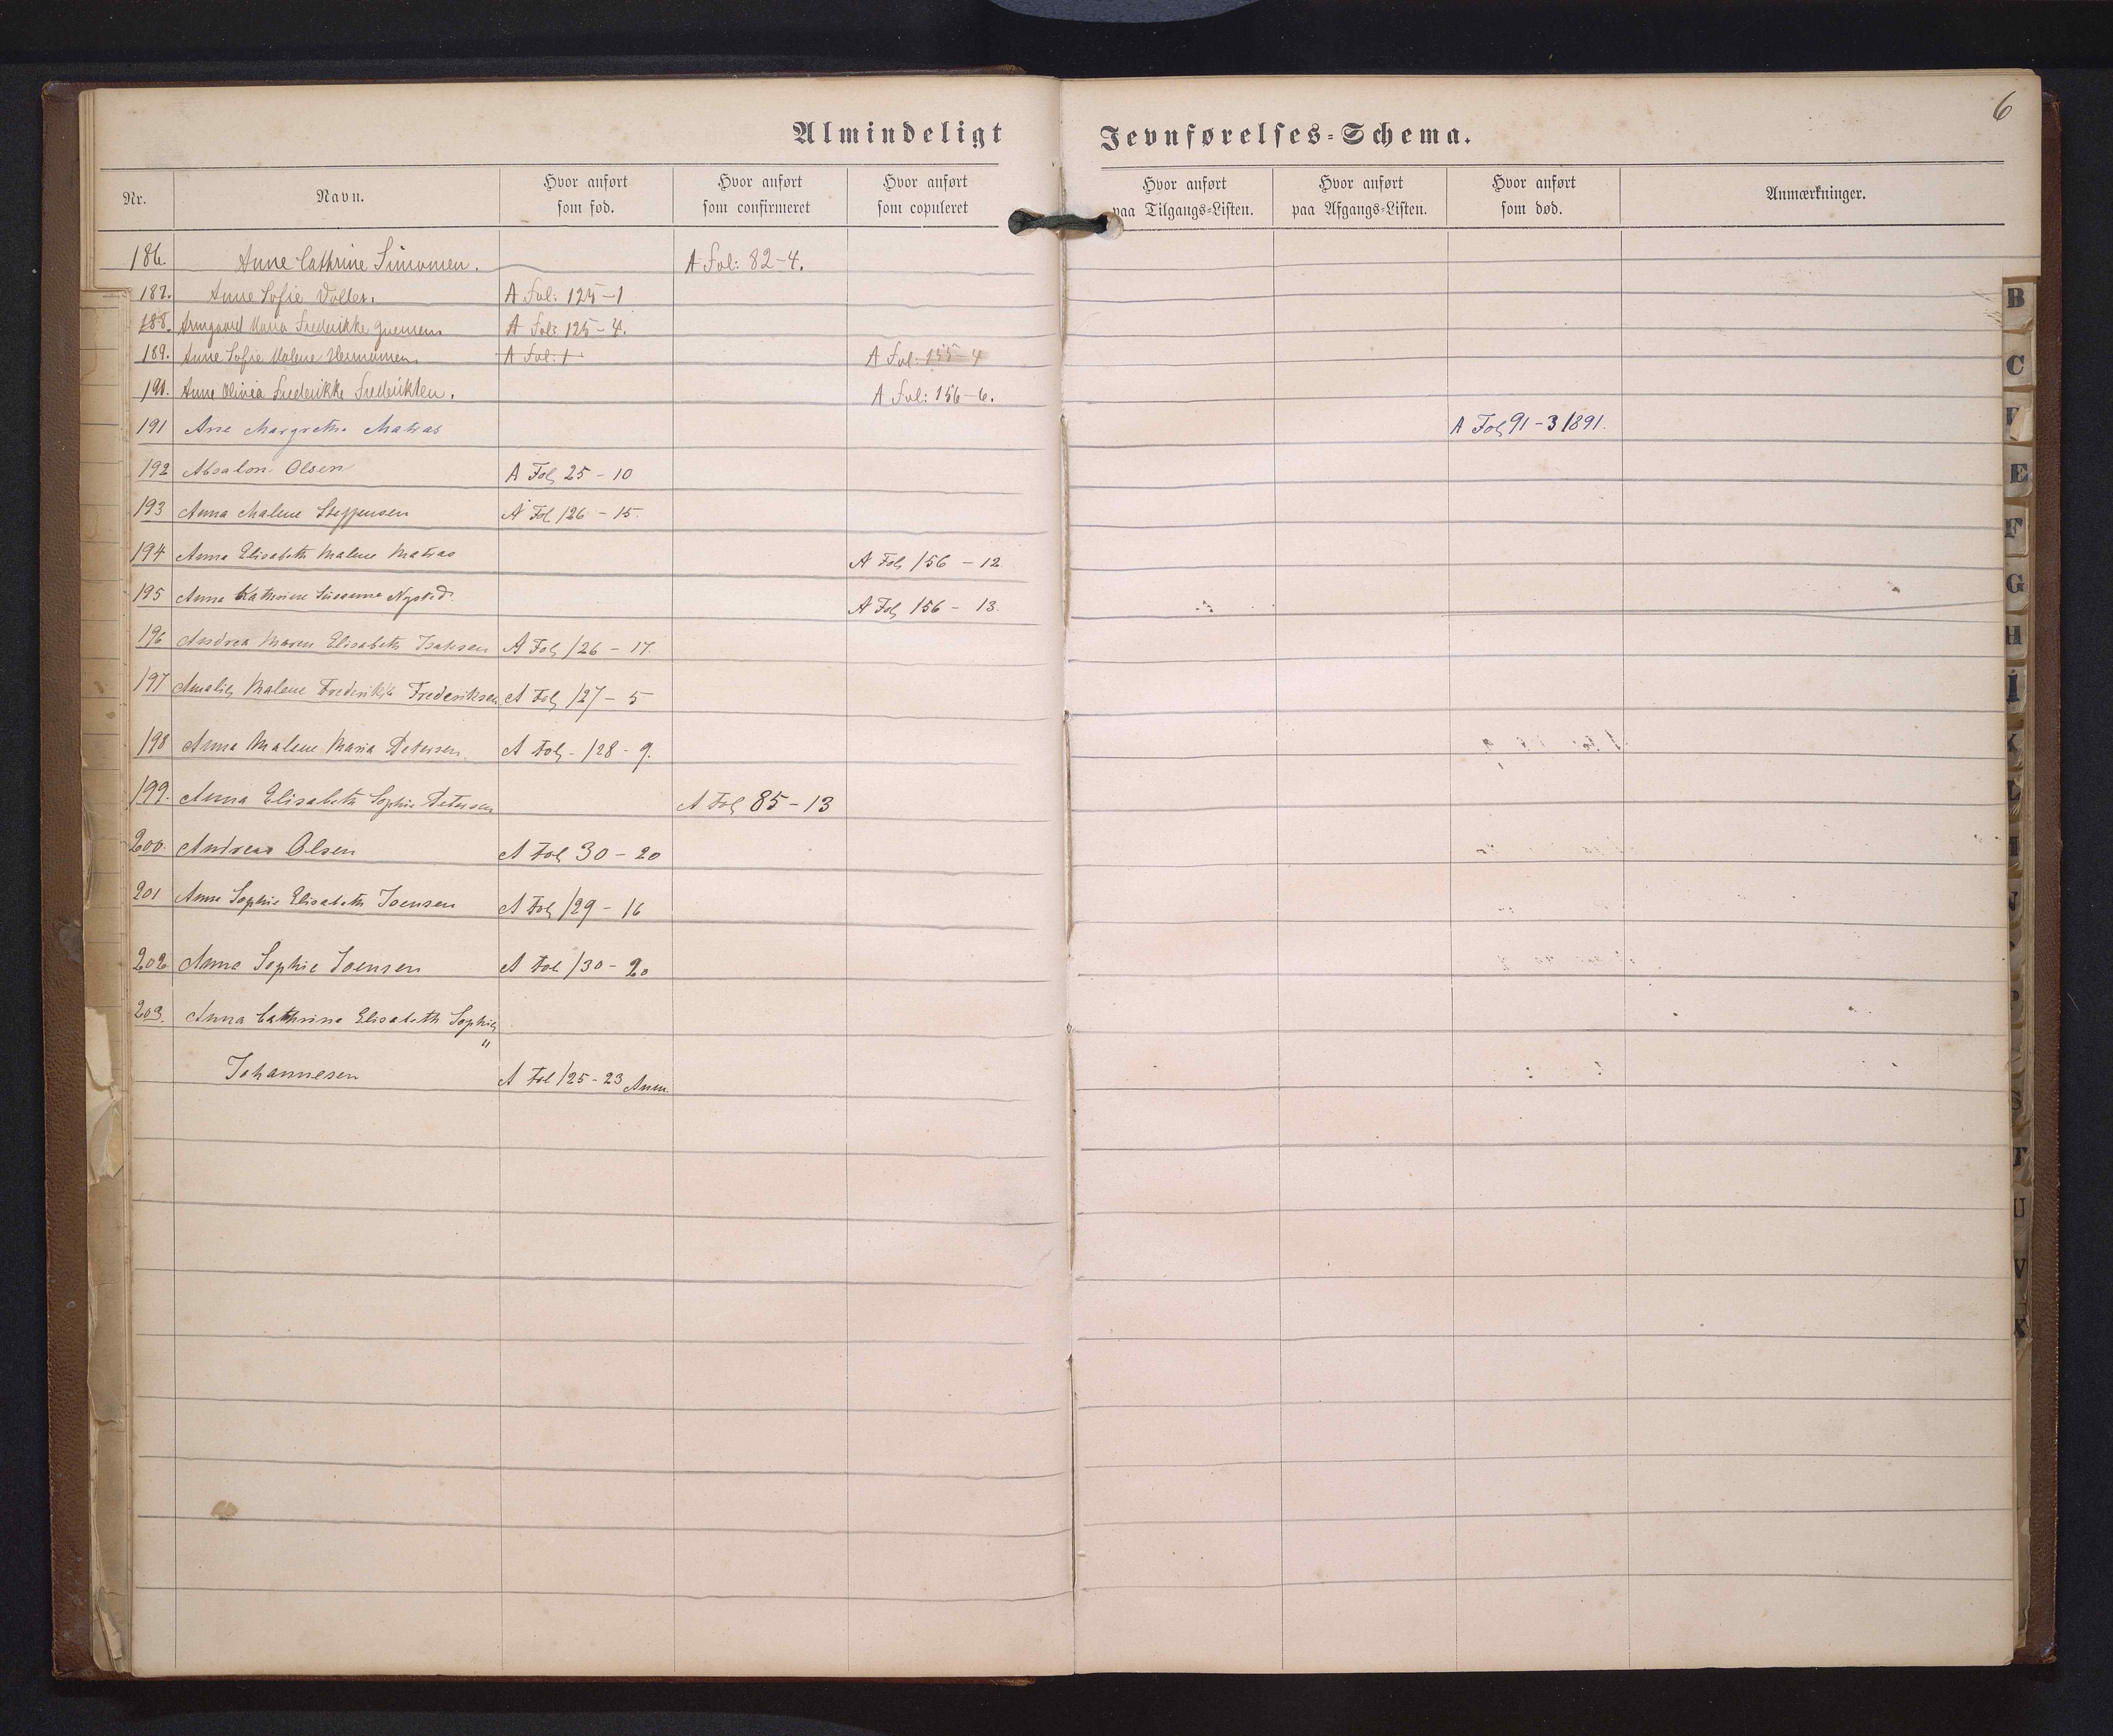 6
Almindeligt Jevnførelses-Schema.
Nr. Navn. Hvor anført som fød. Hvor anført som confirmeret Hvor anført som copuleret Hvor anført paa Tilgangs-Listen. Hvor anført paa Afgangs-Listen. Hvor anført som død. Anmærkninger.
186. Anne Cathrine Simonsen. A Fol: 82-4.
187. Anne Sofie A Fol: 125-1
188. Maria Frederikke A Fol: 125-4.
189. Anne Sofie Malene A Fol: 1 A Fol: 155-4
190. Anne Olivia Frederikke A Fol: 156-6.
191 Ane Margrethe Matras A Fol 91-3 1891.
192 Absalon Olsen A Fol 25-10
193 Anna Malene Steffensen A Fol 126-15.
194 Anna Elisabeth Malene Matras A Fol 156-12
195 Anna Kathrine Susanne A Fol 156-13.
196 Andrea Maren Elisabeth Isaksen A Fol 126-17.
197 Amalie Malene Frederikke Frederiksen A Fol 127-5
198 Anna Malene Maria Petersen A Fol - 128-9.
199. Anna Elisabeth Sophie Petersen A Fol 85-13
200. Andreas Olsen A Fol 30-20
201 Anna Sophie Elisabeth Joensen A Fol 129-16
202 Anna Sophie Joensen A Fol 130-20
203. Anna Cathrine Elisabeth Sophie
" Johannesen A Fol 125-23 Anm.
B
C
E
F
G
H
I
K
L
N
P
S
T
U
V